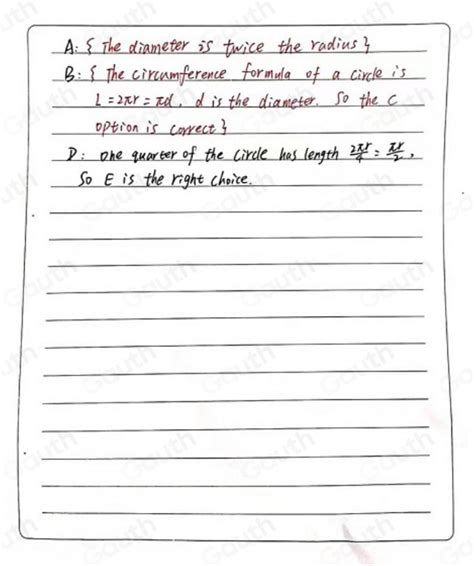 A: { The diameter is twice the radius }
B: { The circumference formula of a circle is
L = 2πr = πd, d is the diameter. So the C
option is correct }
D: one quarter of the circle has length 2πr/4 = πr/2,
So E is the right choice.